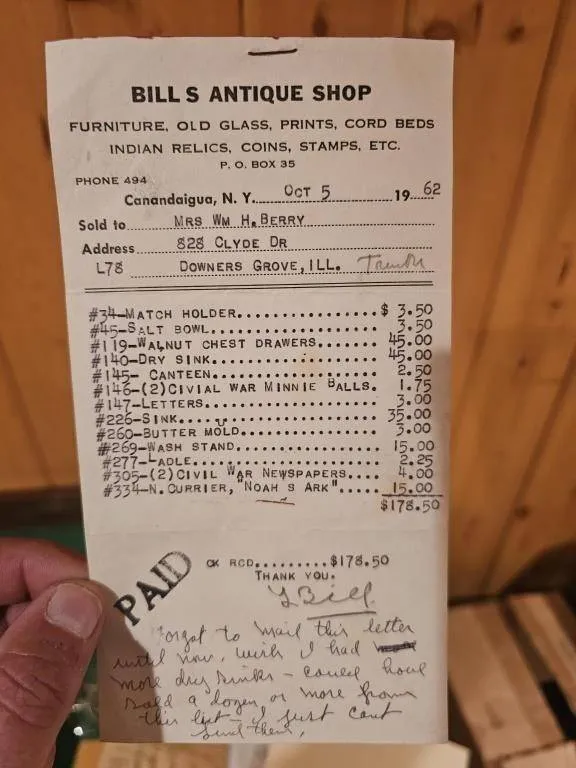 BILL S ANTIQUE SHOP
FURNITURE, OLD GLASS, PRINTS, CORD BEDS
INDIAN RELICS, COINS, STAMPS, ETC.
P. O. BOX 35
PHONE 494
Canandaigua, N. Y. OCT 5 1962
Sold to MRS WM H. BERRY
Address 828 CLYDE DR
L78 DOWNERS GROVE, ILL.
#34-MATCH HOLDER................$ 3.50
#45-SALT BOWL.................... 3.50
#119-WALNUT CHEST DRAWERS....... 45.00
#140-DRY SINK................... 45.00
#145- CANTEEN................... 2.50
#146-(2)CIVIAL WAR MINNIE BALLS. 1.75
#147-LETTERS.................... 3.00
#226-SINK....................... 35.00
#260-BUTTER MOLD................ 3.00
#269-WASH STAND................. 15.00
#277-LADLE...................... 2.25
#305-(2)CIVIL WAR NEWSPAPERS.... 4.00
#334-N. CURRIER, "NOAH S ARK"..... 15.00
$178.50
PAID
CK RCD.........$178.50
THANK YOU.
Bill
Forgot to mail this letter
until now, wish I had
more dry sinks - could have
sold a dozen or more from
this list - I just cant
find them.